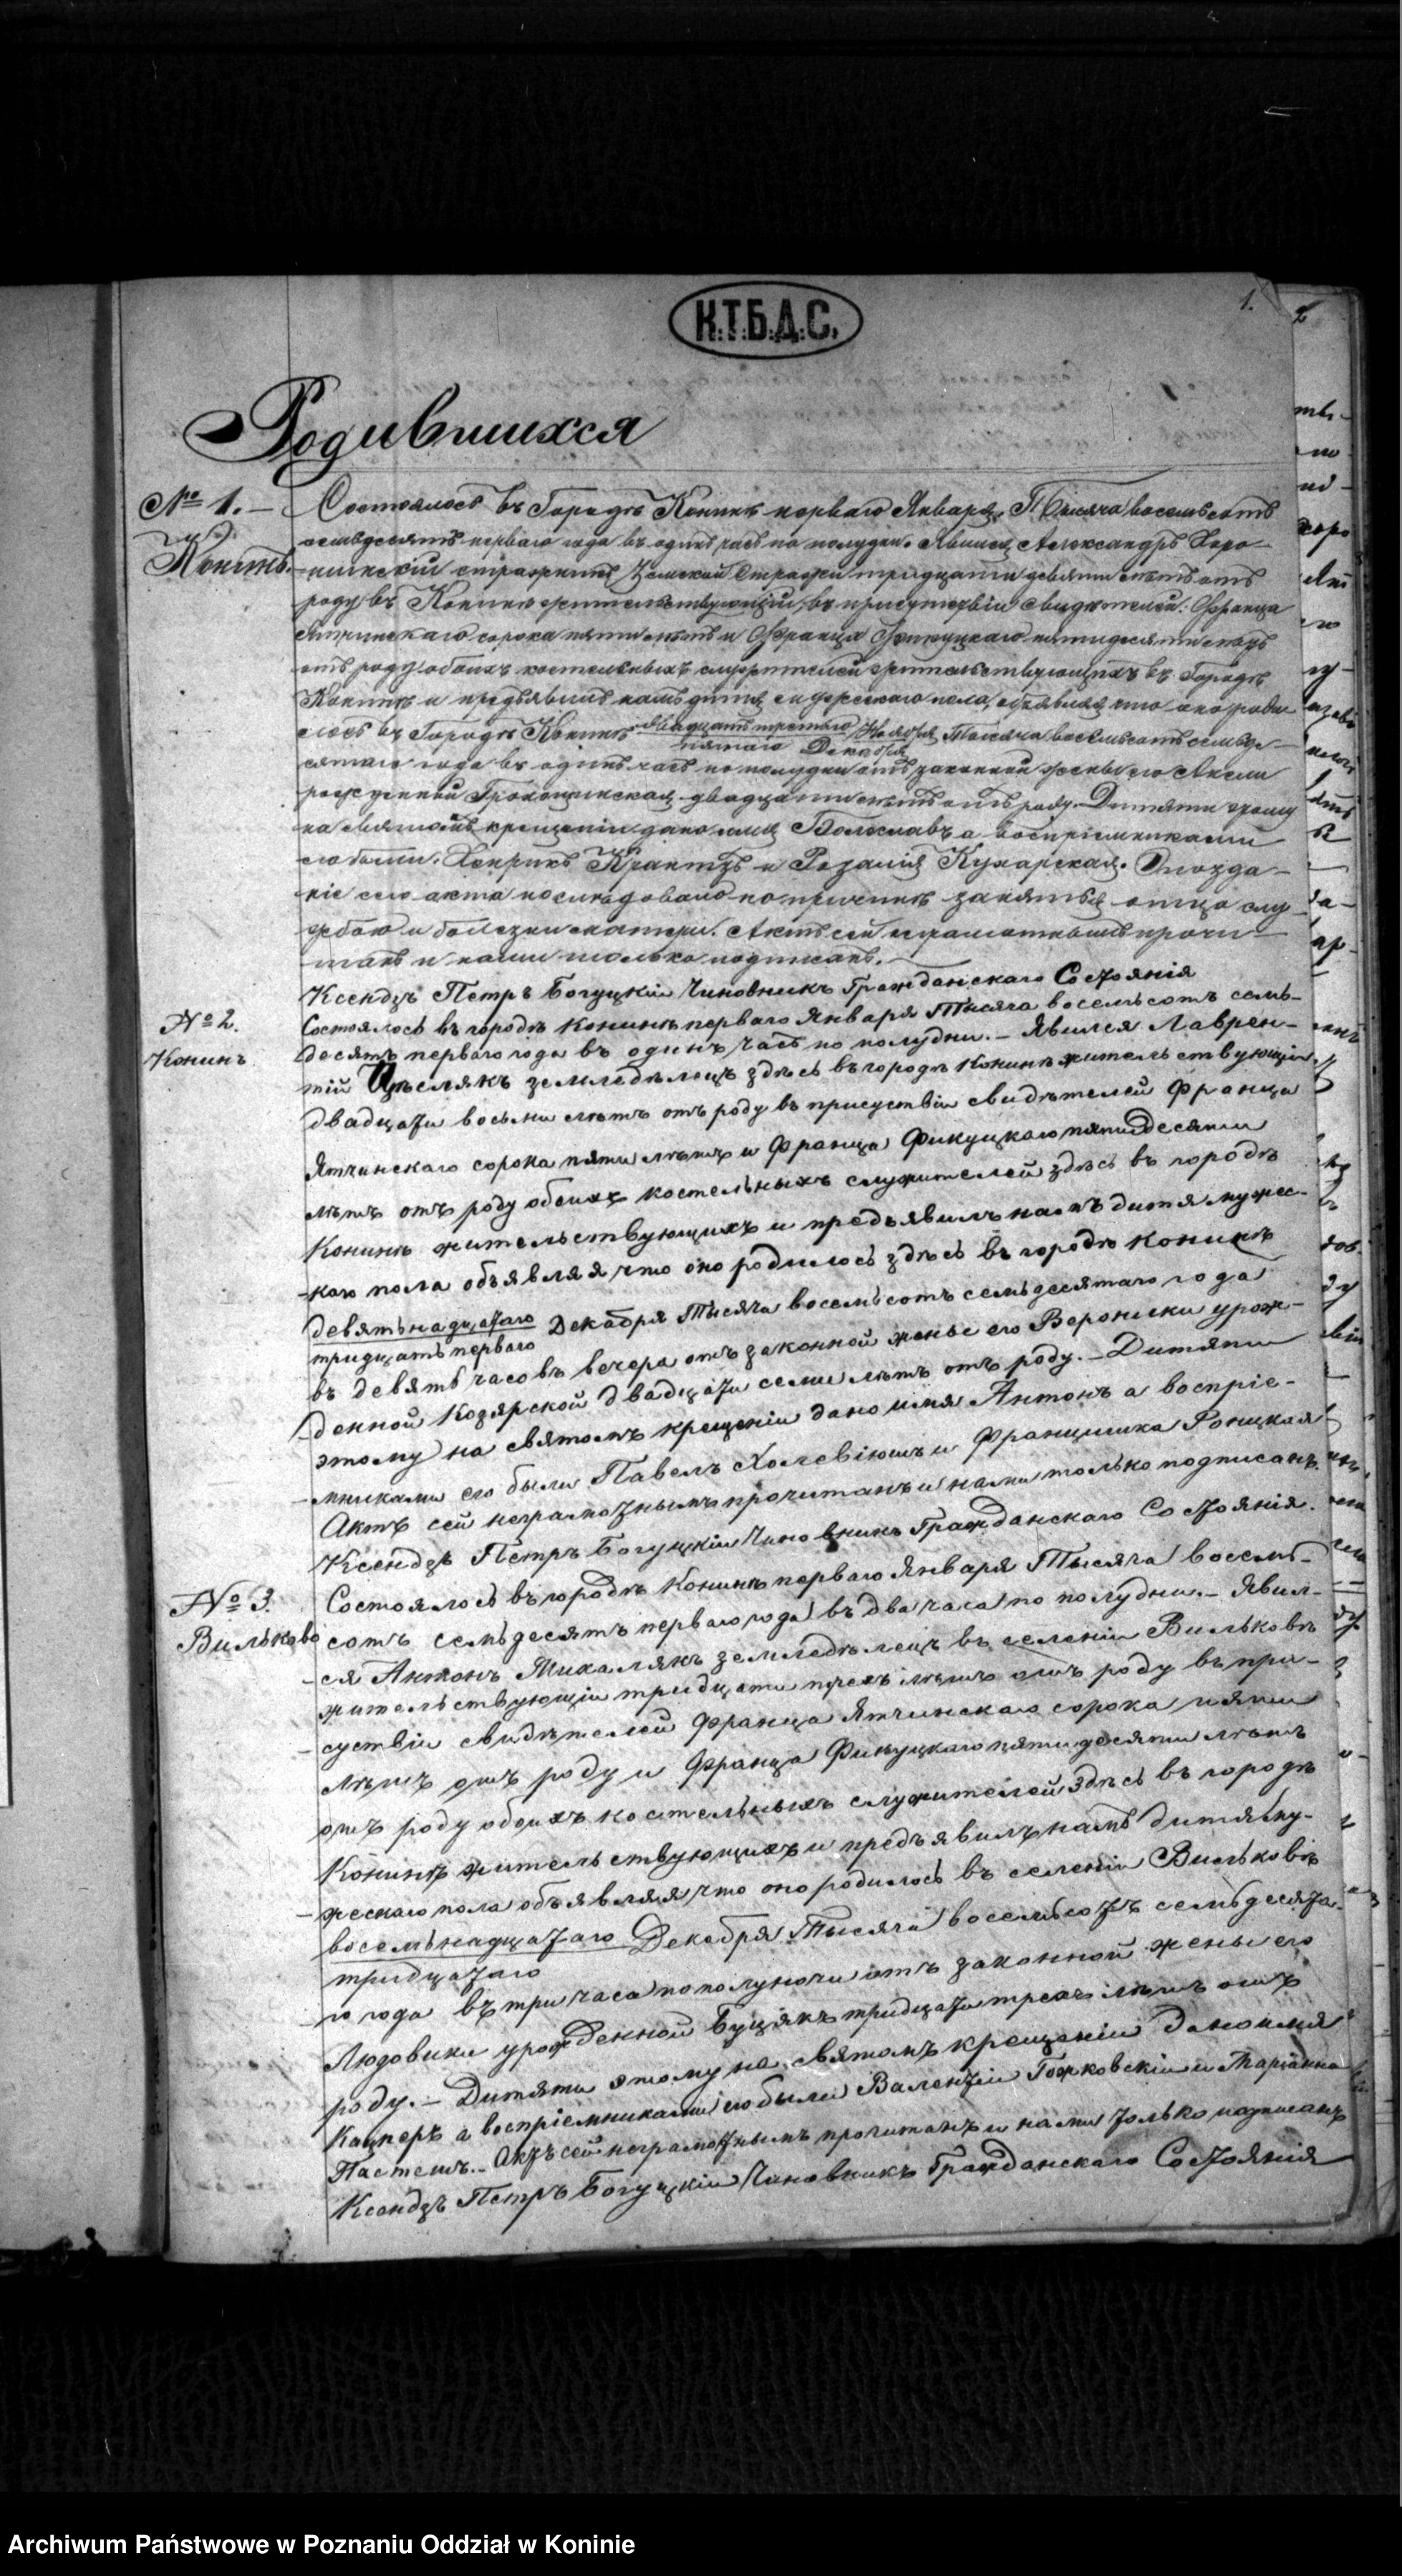 К.Т.Б.Д.С.
1.
2
Родившихся
№ 1.
Конинъ.
Состоялось въ Городѣ Конинѣ перваго Января Тысяча восемьсотъ
семьдесятъ перваго года въ одинъ часъ по полудни. Явился Александръ
стражникъ Земской Стражи тридцати девяти лѣтъ отъ
роду въ Конинѣ жительствующій, въ присутствіи свидѣтелей: Франца
Ятчинскаго сорока пяти лѣтъ и Франца Фикуцкаго пятидесяти лѣтъ
отъ роду обоихъ костельныхъ служителей жительствующихъ въ Городѣ
Конинѣ и предъявилъ намъ дитя мужескаго пола, объявляя что оно роди-
лось въ Городѣ Конинѣ двадцать третьяго Ноября Тысяча восемьсотъ семьде-
пятаго Декабря
сятаго года въ одинъ часъ по полудни отъ законной жены его
двадцати лѣтъ отъ роду. Дитяти этому
на святомъ крещеніи дано имя Болеславъ а воспріемниками
его были: Хенрикъ и Розалія Кухарская. Опозда-
ніе сего акта послѣдовало по причинѣ занятья отца слу-
жбою и болезни матери. Актъ сей неграмотнымъ прочи-
танъ и нами только подписанъ.
Ксендзъ Петръ Богуцкій Чиновникъ Гражданскаго Состоянія
№ 2.
Конинъ
Состоялось въ городѣ Конинѣ перваго Января Тысяча восемьсотъ семь-
десятъ перваго года въ одинъ часъ по полудни. – Явился Лаврен-
тій Цѣслякъ земледѣлецъ здѣсь въ городѣ Конинѣ жительствующій
двадцати восьми лѣтъ отъ роду въ присуствіи свидѣтелей Франца
Ятчинскаго сорока пяти лѣтъ и Франца Фикуцкаго пятидесяти
лѣтъ отъ роду обоихъ костельныхъ служителей здѣсь въ городѣ
Конинѣ жительствующихъ и предъявилъ намъ дитя мужес-
каго пола объявляя что оно родилось здѣсь въ городѣ Конинѣ
девятьнадцатаго Декабря Тысяча восемьсотъ семьдесятаго года
тридцать перваго
въ девять часовъ вечера отъ законной жены его Вероники урож-
денной Козярской двадцати семи лѣтъ отъ роду. – Дитяти
этому на святомъ крещеніи дано имя Антонъ а воспріе-
мниками его были Павелъ и Францишка Роницкая
Актъ сей неграмотнымъ прочитанъ и нами только подписанъ.
Ксендзъ Петръ Богуцкій Чиновникъ Гражданскаго Состоянія.
№ 3.
Вильково
Состоялось въ городѣ Конинѣ перваго Января Тысяча восемь-
сотъ семьдесятъ перваго года въ два часа по полудни. – Явил-
ся Антонъ Михалякъ земледѣлецъ въ селеніи Вильковѣ
жительствующій тридцати трехъ лѣтъ отъ роду въ при-
суствіи свидѣтелей Франца Ятчинскаго сорока пяти
лѣтъ отъ роду и Франца Фикуцкаго пятидесяти лѣтъ
отъ роду обоихъ костельныхъ служителей здѣсь въ городѣ
Конинѣ жительствующихъ и предъявилъ намъ дитя му-
жескаго пола объявляя что оно родилось въ селеніи Вильковѣ
восемьнадцатаго Декабря Тысяча восемьсотъ семьдесята-
тридцатаго
го года въ три часа по полуночи отъ законной жены его
Людовики урожденной Буцякъ тридцати трехъ лѣтъ отъ
роду. – Дитяти этому на святомъ крещеніи дано имя
Кацперъ а воспріемниками его были Валентій Гожковскій и Маріанна
Актъ сей неграмотнымъ прочитанъ и нами только подписанъ
Ксендзъ Петръ Богуцкій Чиновникъ Гражданскаго Состоянія
Archiwum Państwowe w Poznaniu Oddział w Koninie